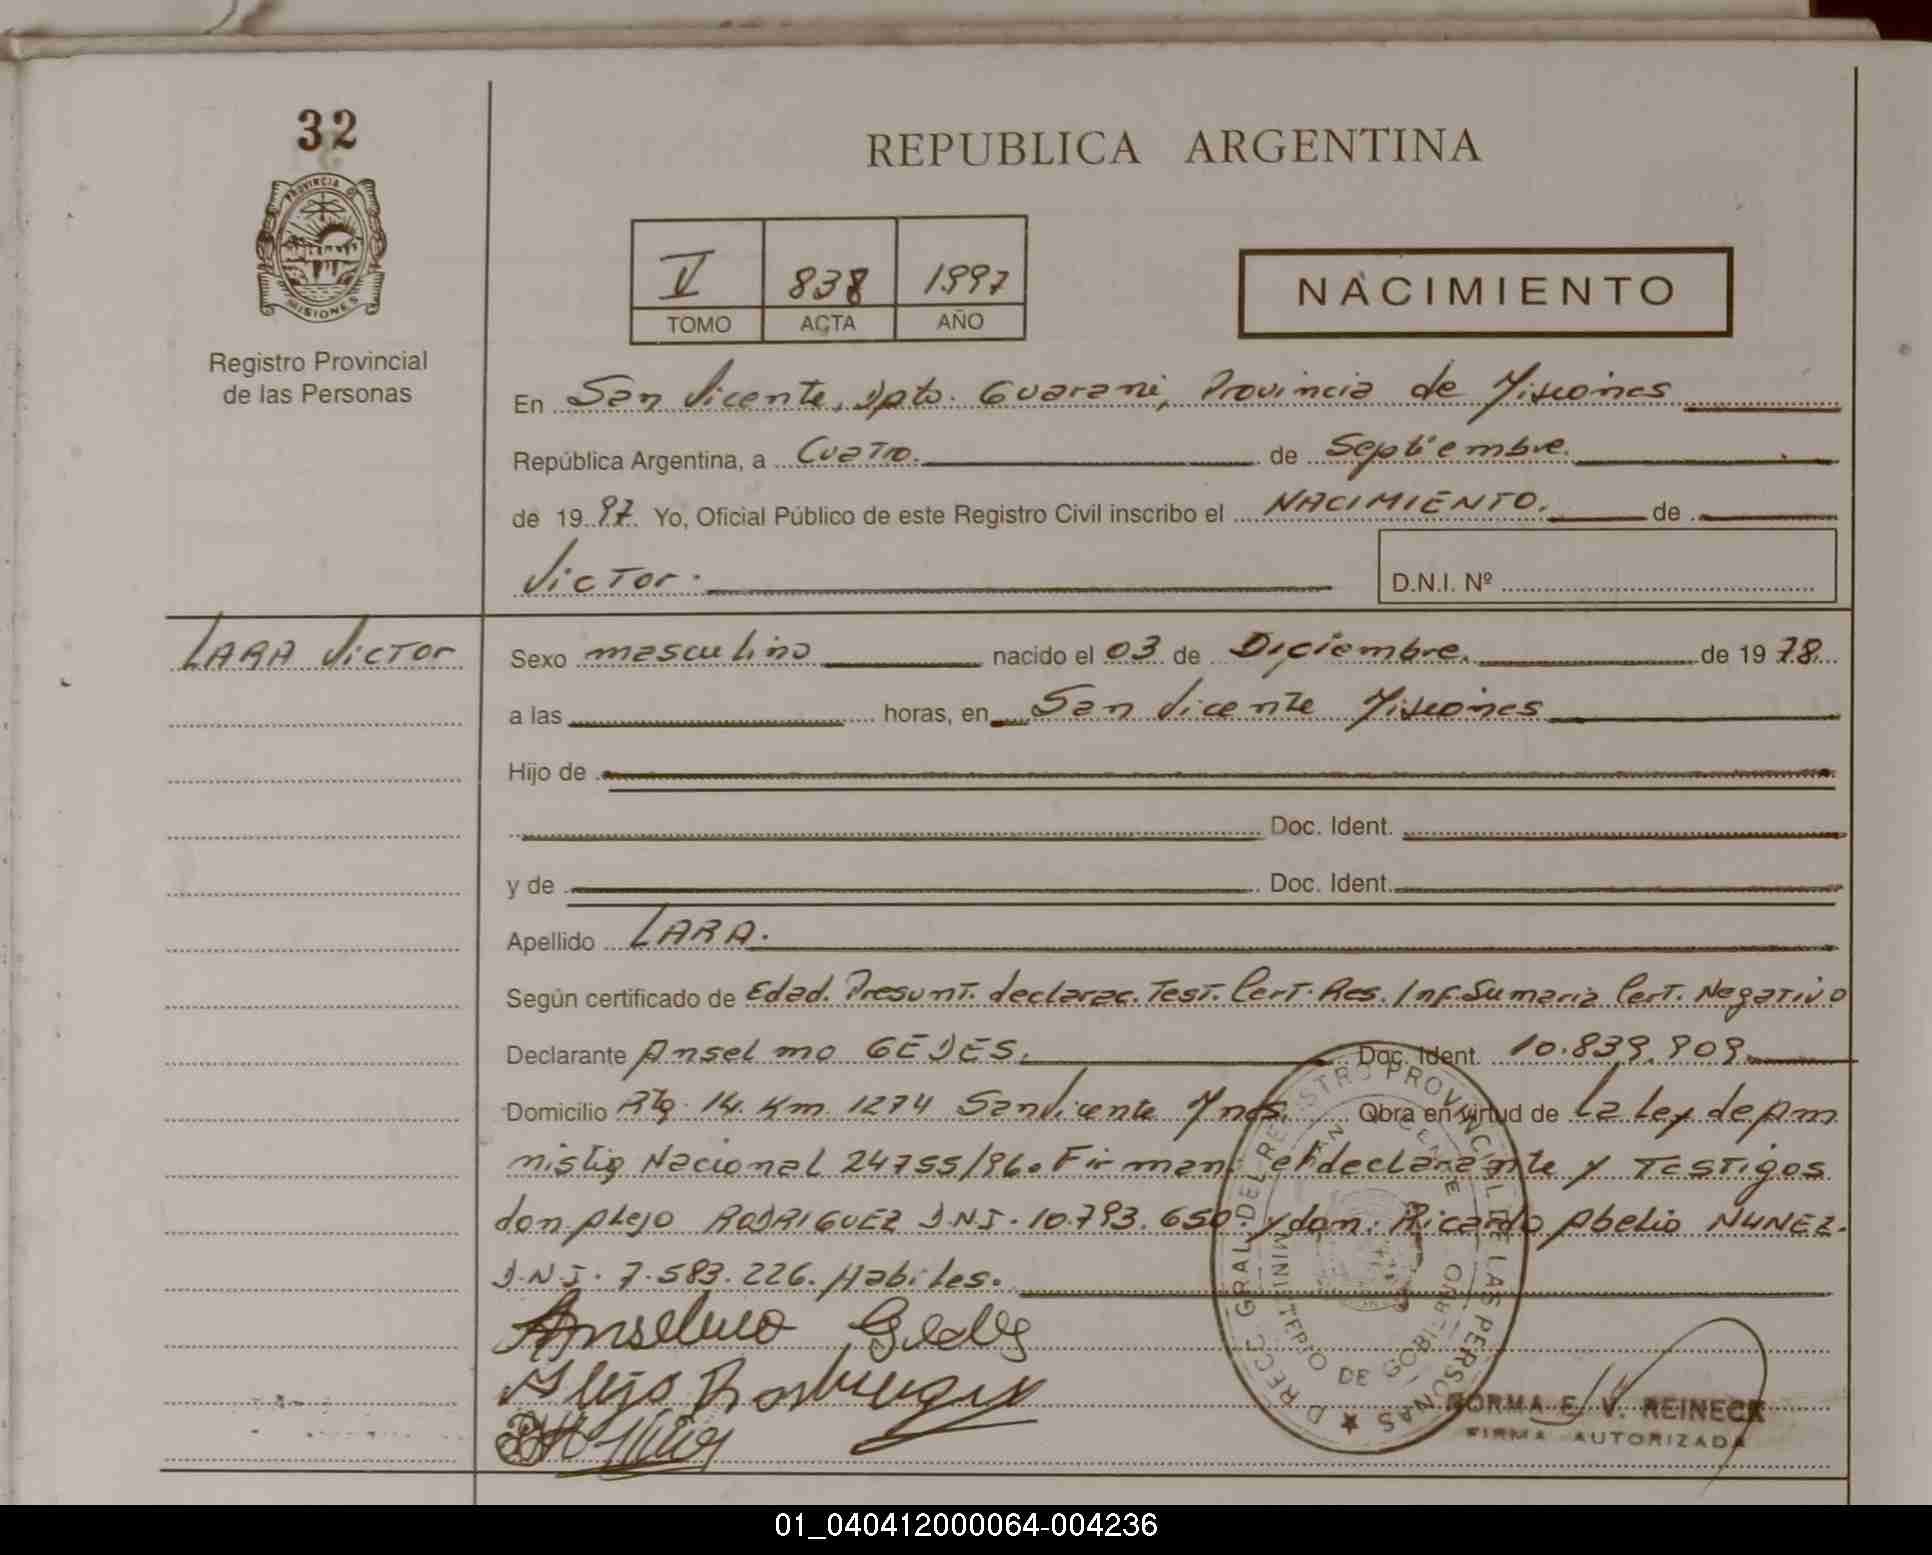 32
REPUBLICA ARGENTINA
PROVINCIA DE
MISIONES
Registro Provincial
de las Personas
V 838 1997
TOMO ACTA AÑO
NACIMIENTO
En San Vicente, Dpto. Guarani, Provincia de Misiones
República Argentina, a Cuatro. de Septiembre.
de 1997. Yo, Oficial Público de este Registro Civil inscribo el NACIMIENTO. de
Victor.
D.N.I. Nº
LARA Victor
Sexo masculino nacido el 03 de Diciembre. de 1978
a las horas, en San Vicente Misiones
Hijo de
Doc. Ident.
y de Doc. Ident.
Apellido LARA.
Según certificado de Edad. Presunt. declarac. Test. Cert. Res. Inf. Sumaria Cert. Negativo
Declarante Anselmo GEDES. Doc. Ident. 10.839.909
Domicilio Rta. 14. Km. 1274 San Vicente Mnes. Obra en virtud de La Ley de Am
nistia Nacional 24755/96. Firman el declarante y Testigos
don Alejo RODRIGUEZ D.N.I. 10.793.650. y don. Ricardo Abelio NUNEZ.
D.N.I. 7.583.226. Habiles.
Anselmo Gedes
Alejo Rodriguez
DIRECC GRAL DEL REGISTRO PROVINCIAL DE LAS PERSONAS
SAN VICENTE
MINISTERIO DE GOBIERNO
NORMA E. V. REINECK
FIRMA AUTORIZADA
01_040412000064-004236